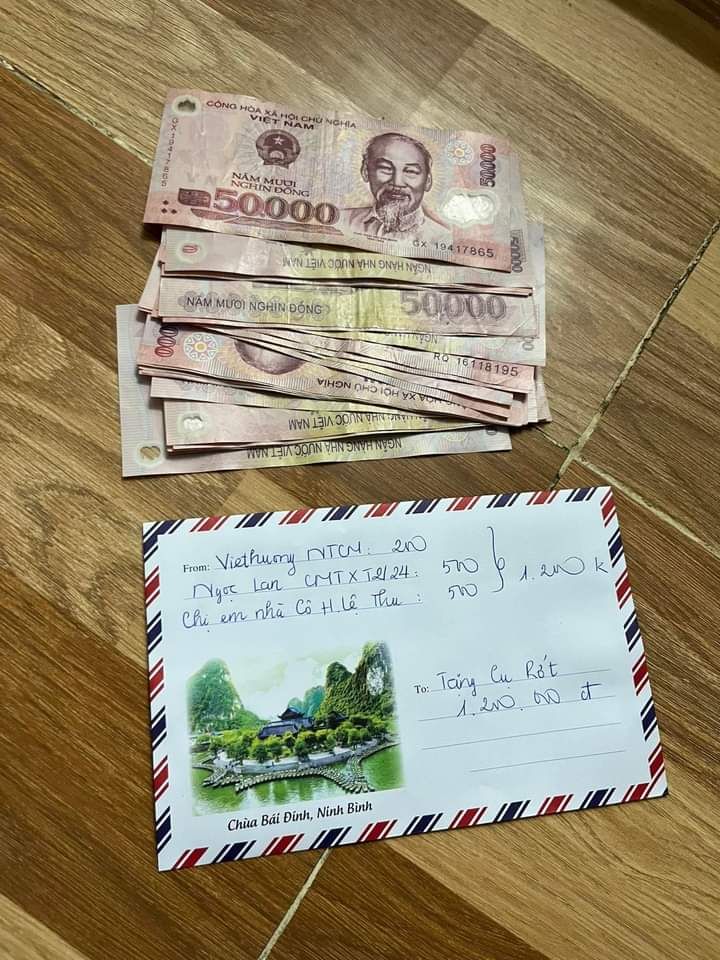 CỘNG HÒA XÃ HỘI CHỦ NGHĨA
VIỆT NAM
GX 19417865
NĂM MƯƠI
NGHÌN ĐỒNG
50.000
50.000
GX 19417865
NGÂN HÀNG NHÀ NƯỚC VIỆT NAM
50.000
NĂM MƯƠI NGHÌN ĐỒNG
50000
000
RQ 16118195
XÃ HỘI CHỦ NGHĨA
NGÂN HÀNG NHÀ NƯỚC VIỆT NAM
NGÂN HÀNG NHÀ NƯỚC VIỆT NAM
From: Viethương NTCM: 200
Ngọc Lan CMTXT2/24: 500
Chị em nhà Cô H.Lệ Thu: 500
1.200 k
To: Tặng Cụ Rớt
1.200.000 đ
Chùa Bái Đính, Ninh Bình